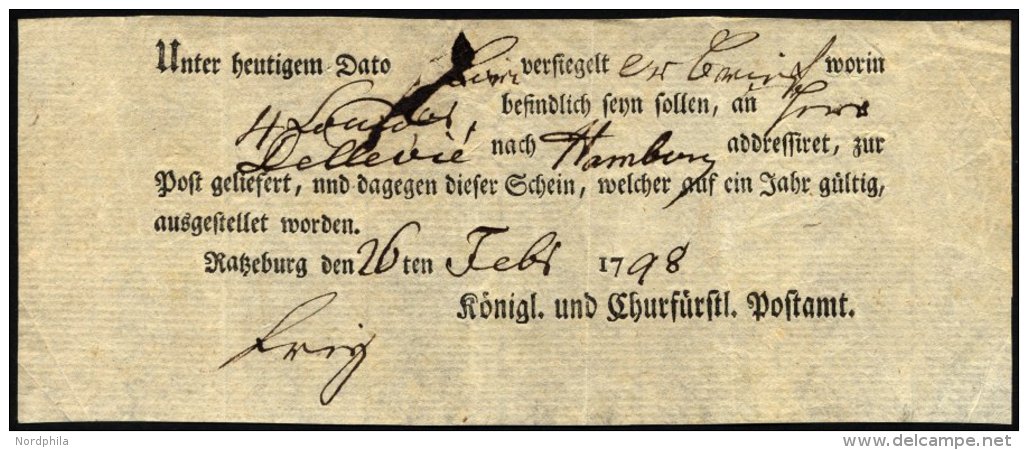 Unter heutigem Dato ein versiegelter Brief worin
4 Louisdor, befindlich seyn sollen, an Herr
Dellevie nach Hamburg addressiret, zur
Post geliefert, nnd dagegen dieser Schein, welcher auf ein Jahr gültig,
ausgestellet worden.
Ratzeburg den 26ten Febr 1798
Königl. und Churfürstl. Postamt.
Nordphila
delcampe.net